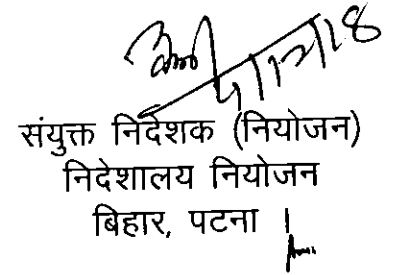 संयुक्त निदेशक (नियोजन)
निदेशालय नियोजन
बिहार, पटना